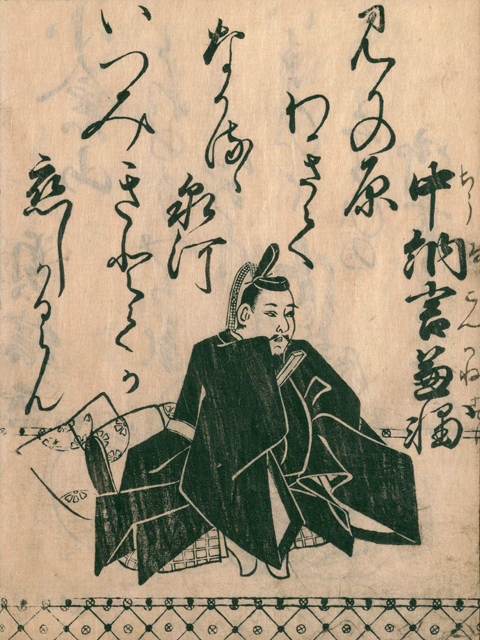 中納言兼輔
ちうなごんかねすけ
見かの原
わきて
なかるゝ
泉河
いつみきとてか
恋しかるらん